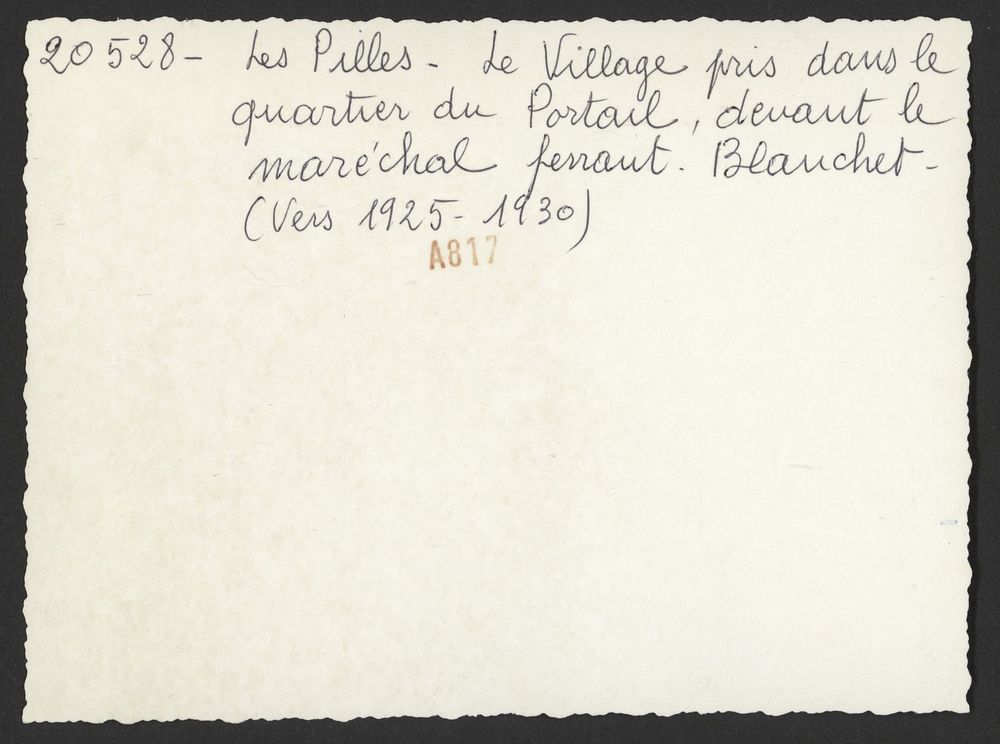 20 528 - Les Pilles - Le Village pris dans le
quartier du Portail, devant le
maréchal ferrant. Blanchet -
(Vers 1925 - 1930)
A817